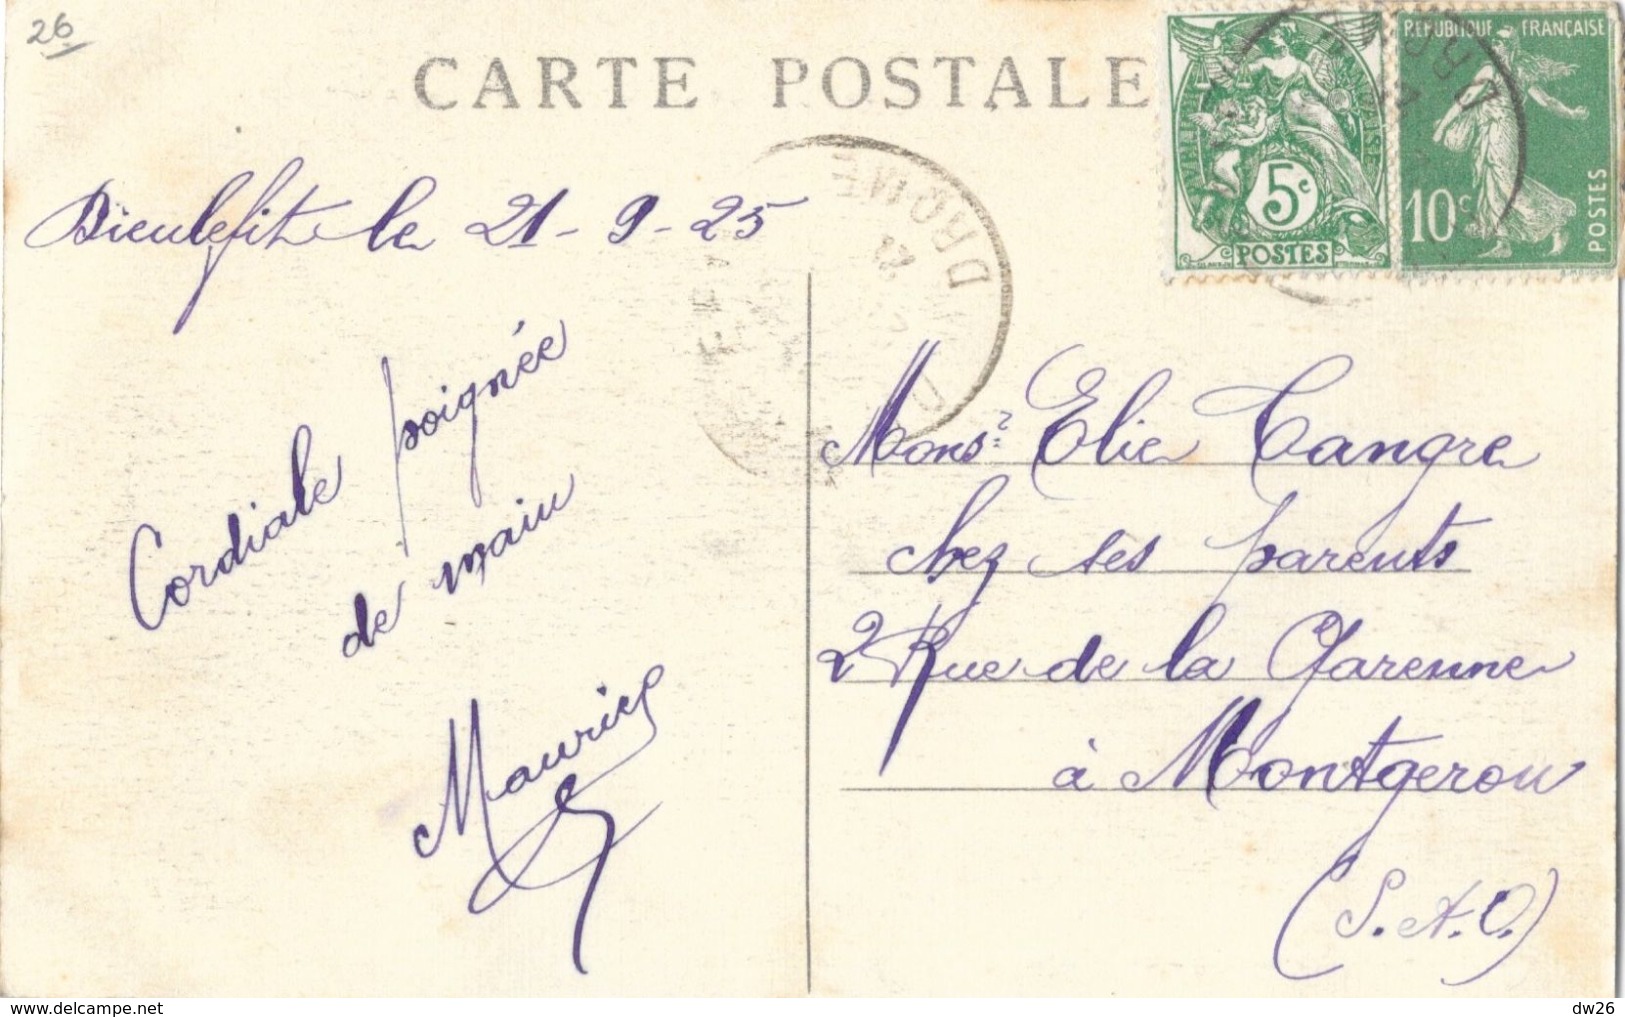 26
CARTE POSTALE
RÉPUBLIQUE FRANÇAISE
5c
POSTES
10c
POSTES
DROME
Dieulefit le 21-9-25
Cordiale poignée
de main
Maurice
Monsr Elie Tangre
chez ses parents
2 Rue de la Garenne
à Montgeron
(S.-&-O.)
www.delcampe.net
dw26